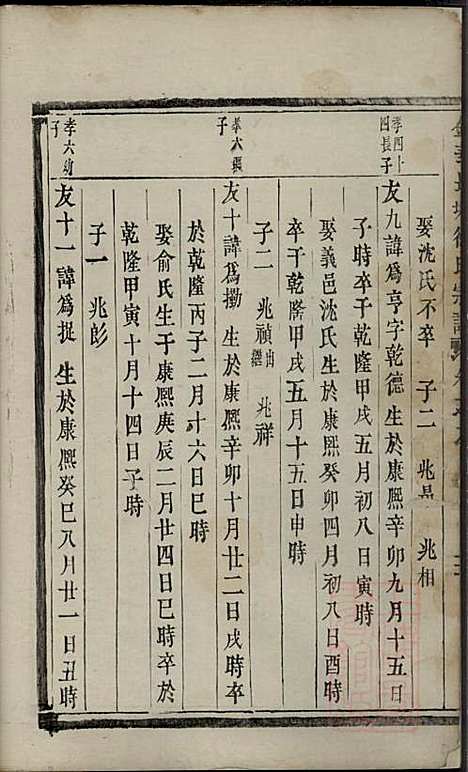 氏宗譜
娶沈氏不卒 子二 兆昇 兆相
孝四十四長子
友九諱爲亨字乾德生於康熙辛卯九月十五日
子時卒于乾隆甲戌五月初八日寅時
娶義邑沈氏生于康熙癸卯四月初八日酉時
卒于乾隆甲戌五月十五日申時
子二 兆禎出繼 兆祥
孝六長子
友十諱爲勷 生於康熙辛卯十月廿二日戌時卒
於乾隆丙子二月廾六日巳時
娶俞氏生于康熙庚辰二月廿四日巳時卒於
乾隆甲寅十月十四日子時
子一 兆彭
孝六幼子
友十一 諱爲捉 生於康熙癸巳八月廿一日丑時